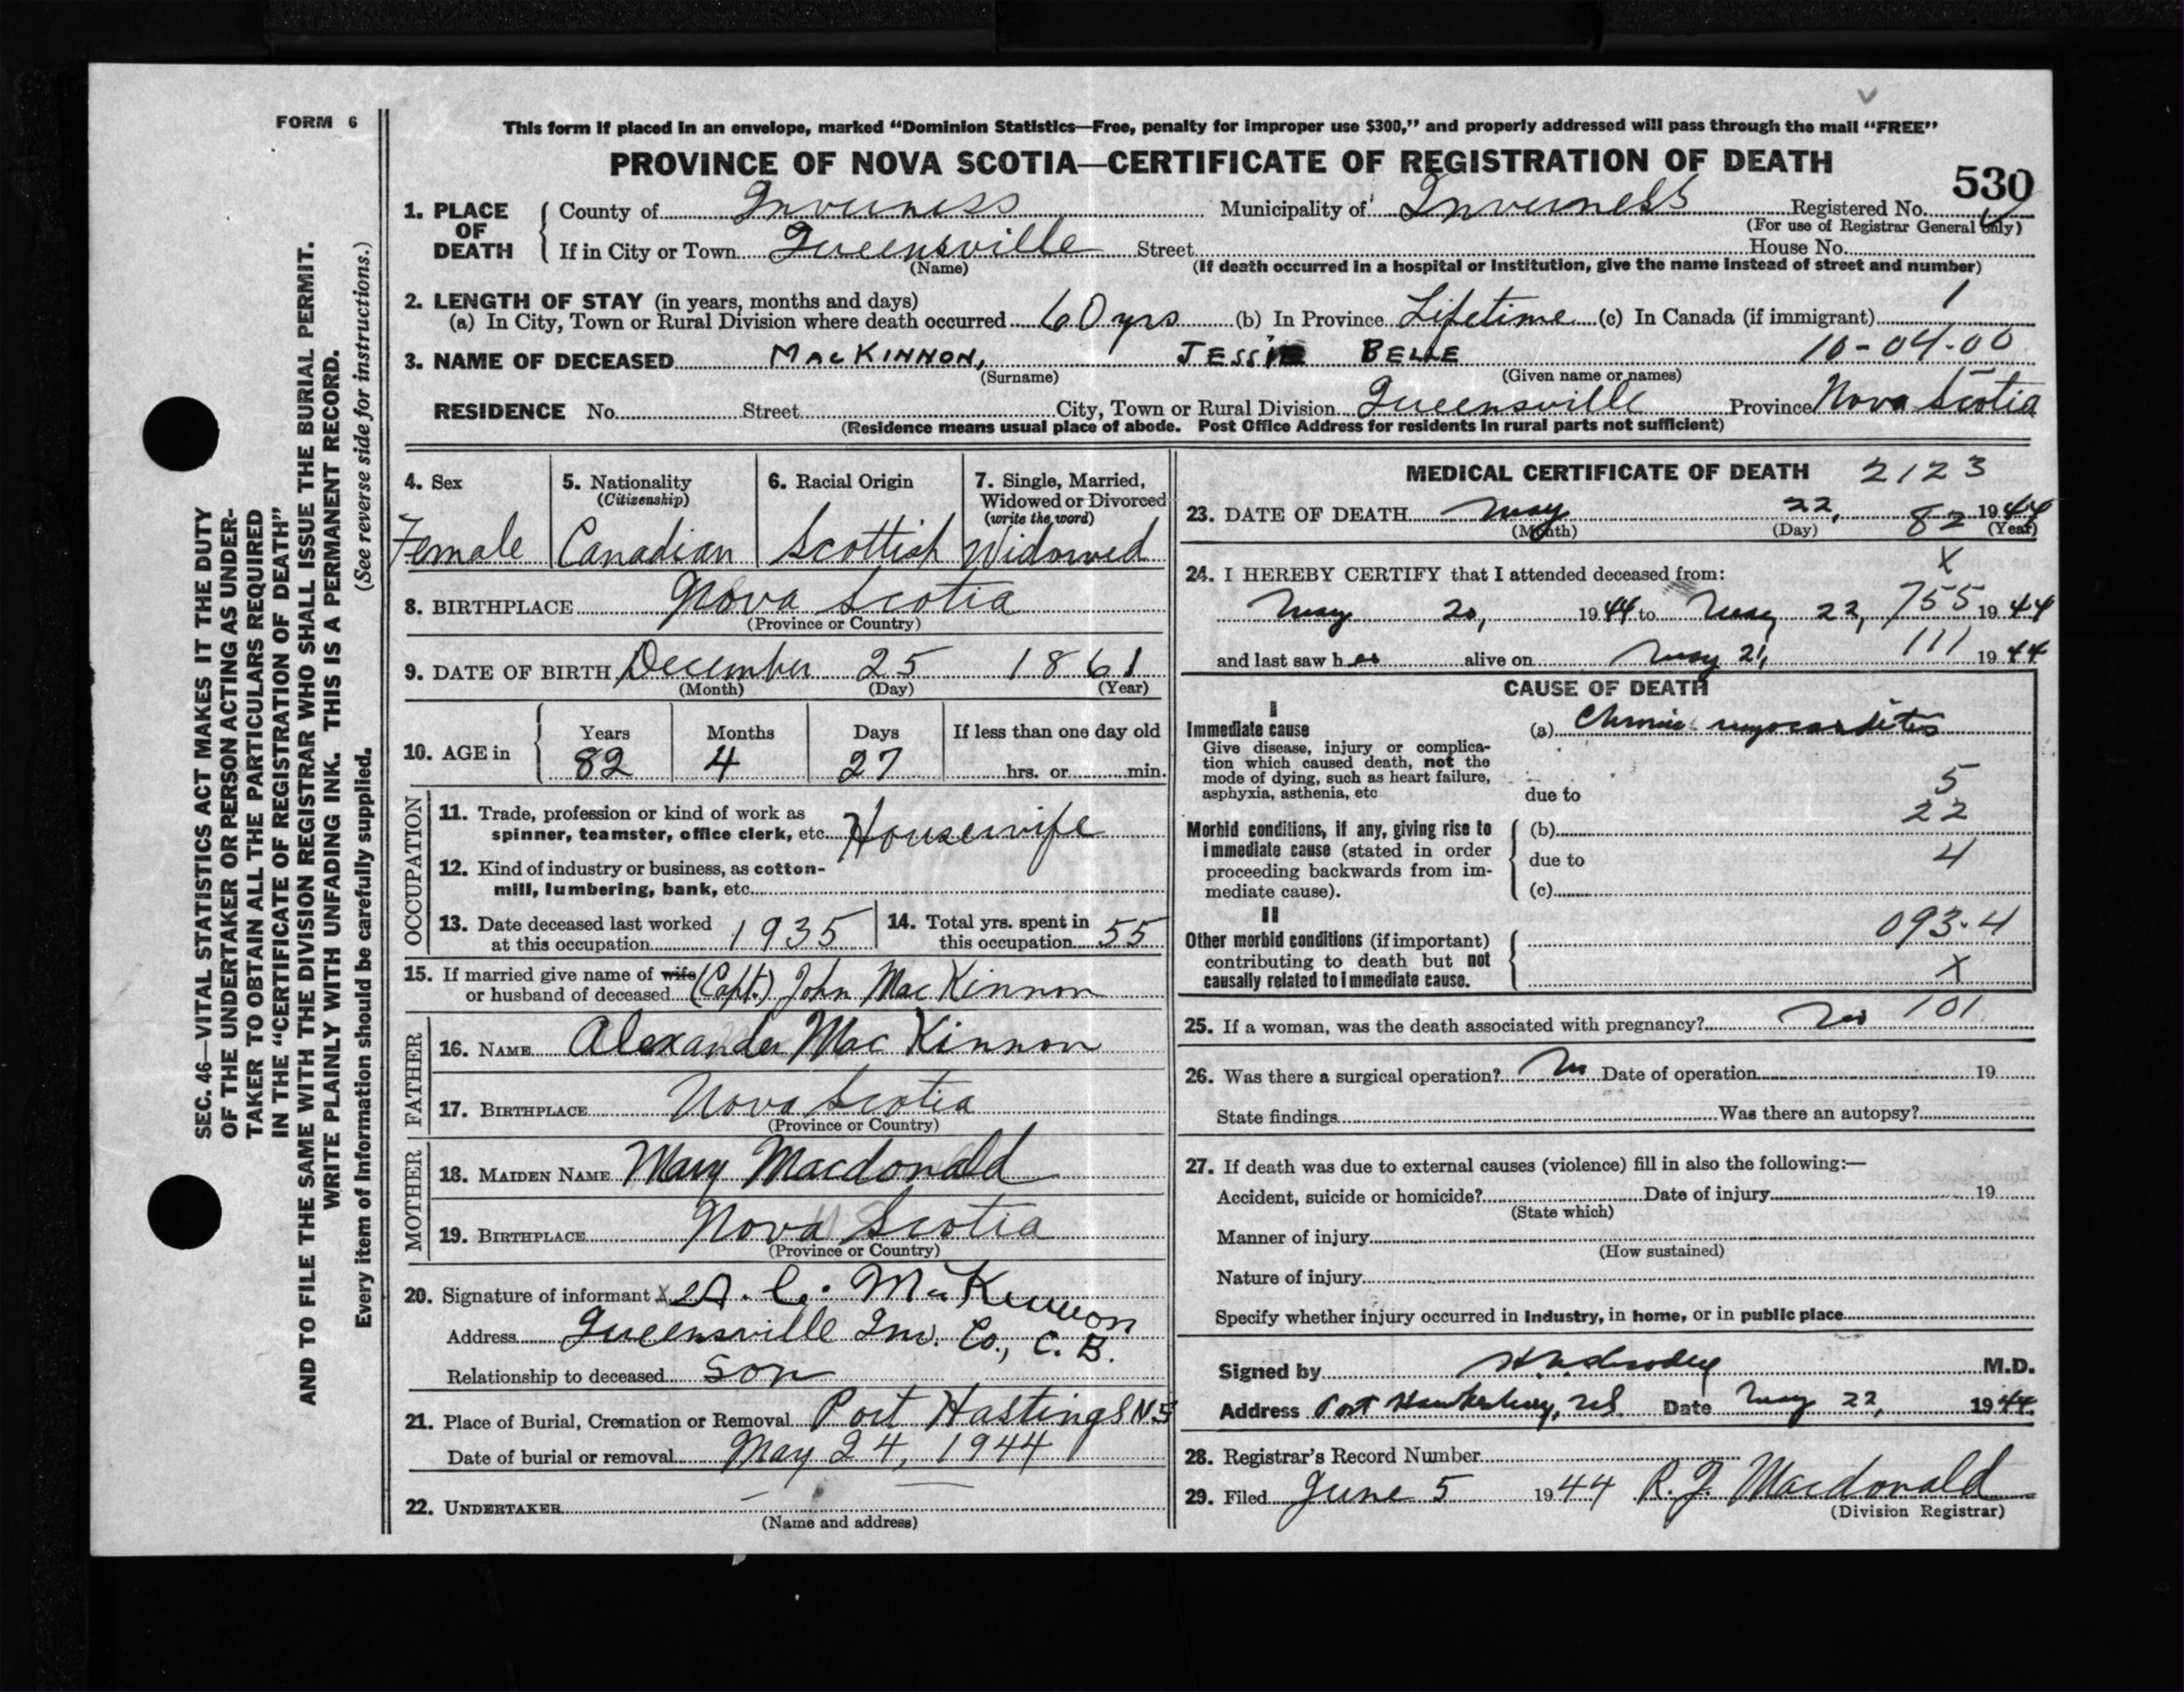 FORM 6
This form if placed in an envelope, marked “Dominion Statistics—Free, penalty for improper use $300,” and properly addressed will pass through the mail “FREE”
PROVINCE OF NOVA SCOTIA—CERTIFICATE OF REGISTRATION OF DEATH
530
1. PLACE OF DEATH County of Inverness Municipality of Inverness Registered No.
(For use of Registrar General only)
If in City or Town Queensville Street House No.
(Name) (If death occurred in a hospital or institution, give the name instead of street and number)
2. LENGTH OF STAY (in years, months and days)
(a) In City, Town or Rural Division where death occurred 60 yrs (b) In Province Lifetime (c) In Canada (if immigrant) 1
3. NAME OF DECEASED MACKINNON, JESSIE BELLE 10-04-00
(Surname) (Given name or names)
RESIDENCE No. Street City, Town or Rural Division Queensville Province Nova Scotia
(Residence means usual place of abode. Post Office Address for residents in rural parts not sufficient)
4. Sex
Female
5. Nationality
(Citizenship)
Canadian
6. Racial Origin
Scottish
7. Single, Married,
Widowed or Divorced
(write the word)
Widowed
8. BIRTHPLACE Nova Scotia
(Province or Country)
9. DATE OF BIRTH December 25 1861
(Month) (Day) (Year)
10. AGE in Years Months Days If less than one day old
82 4 27 hrs. or min.
OCCUPATION
11. Trade, profession or kind of work as
spinner, teamster, office clerk, etc. Housewife
12. Kind of industry or business, as cotton-
mill, lumbering, bank, etc.
13. Date deceased last worked
at this occupation 1935
14. Total yrs. spent in
this occupation 55
15. If married give name of wife
or husband of deceased (Capt.) John MacKinnon
FATHER
16. NAME Alexander MacKinnon
17. BIRTHPLACE Nova Scotia
(Province or Country)
MOTHER
18. MAIDEN NAME Mary Macdonald
19. BIRTHPLACE Nova Scotia
(Province or Country)
20. Signature of informant X A. C. MacKinnon
Address Queensville Inv. Co., C. B.
Relationship to deceased Son
21. Place of Burial, Cremation or Removal Port Hastings N S
Date of burial or removal May 24, 1944
22. UNDERTAKER
(Name and address)
MEDICAL CERTIFICATE OF DEATH 2123
23. DATE OF DEATH May 22, 82 1944
(Month) (Day) (Year)
X
24. I HEREBY CERTIFY that I attended deceased from:
May 20, 1944 to May 22, 755 1944
and last saw her alive on May 21, 111 1944
CAUSE OF DEATH
I
Immediate cause (a) Chronic myocarditis
Give disease, injury or complica-
tion which caused death, not the
mode of dying, such as heart failure,
asphyxia, asthenia, etc due to 5
22
Morbid conditions, if any, giving rise to (b)
immediate cause (stated in order due to 4
proceeding backwards from im-
mediate cause). (c)
II
Other morbid conditions (if important) 093.4
contributing to death but not
causally related to immediate cause. X
25. If a woman, was the death associated with pregnancy? No 101
26. Was there a surgical operation? No Date of operation 19
State findings Was there an autopsy?
27. If death was due to external causes (violence) fill in also the following:—
Accident, suicide or homicide? Date of injury 19
(State which)
Manner of injury
(How sustained)
Nature of injury
Specify whether injury occurred in industry, in home, or in public place
Signed by M.D.
Address Port Hawkesbury, N.S. Date May 22, 1944
28. Registrar's Record Number
29. Filed June 5 1944 R. J. Macdonald
(Division Registrar)
SEC. 46—VITAL STATISTICS ACT MAKES IT THE DUTY
OF THE UNDERTAKER OR PERSON ACTING AS UNDER-
TAKER TO OBTAIN ALL THE PARTICULARS REQUIRED
IN THE “CERTIFICATE OF REGISTRATION OF DEATH”
AND TO FILE THE SAME WITH THE DIVISION REGISTRAR WHO SHALL ISSUE THE BURIAL PERMIT.
WRITE PLAINLY WITH UNFADING INK. THIS IS A PERMANENT RECORD.
Every item of information should be carefully supplied. (See reverse side for instructions.)